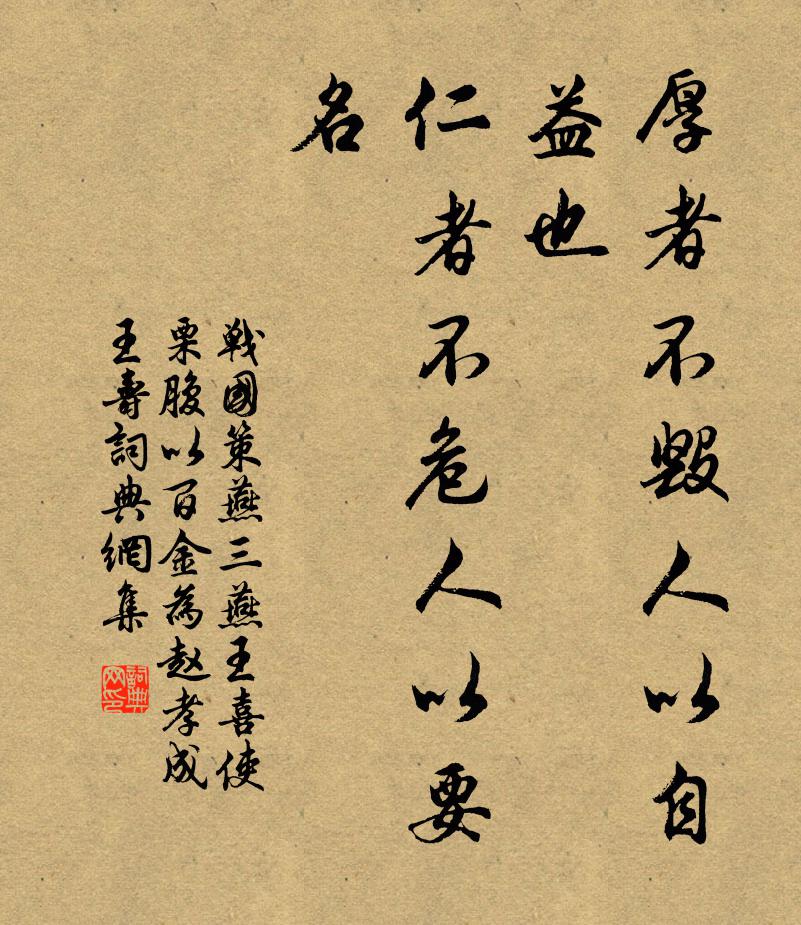 厚者不毁人以自
益也
仁者不危人以要
名
戰國策燕三燕王喜使
栗腹以百金為赵孝成
王壽詞典網集
詞典
网印